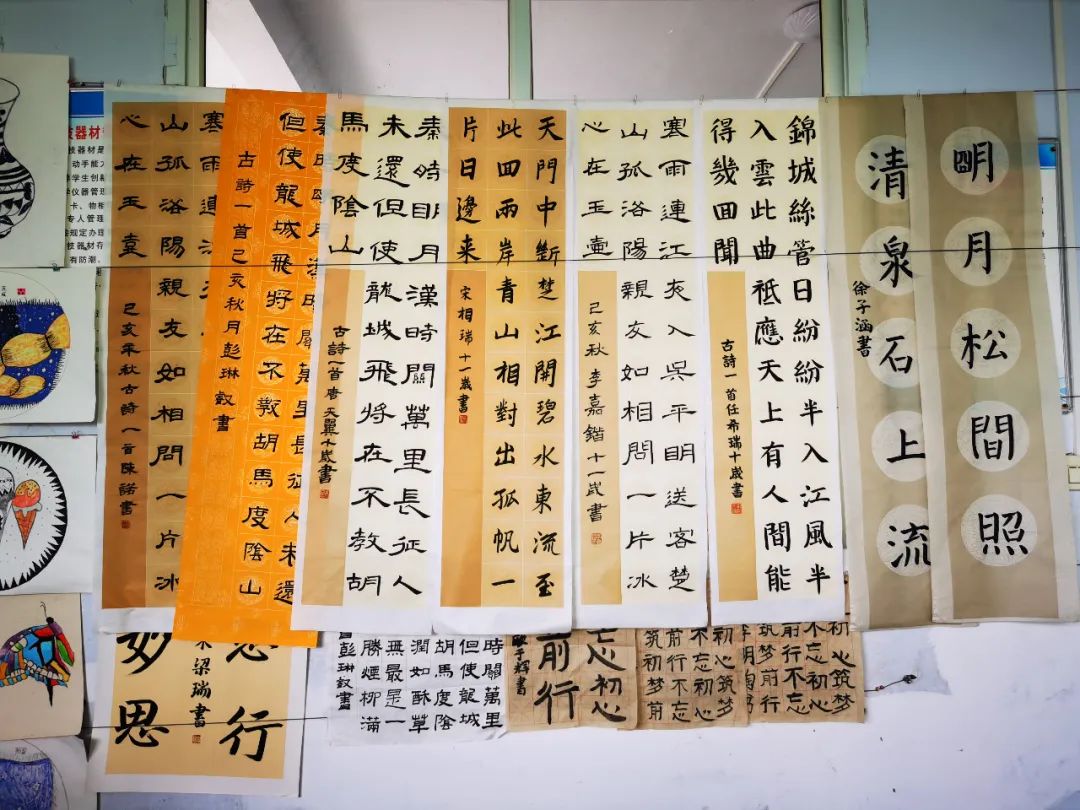 明月松間照
清泉石上流
徐子涵書
錦城絲管日紛紛半入江風半
入雲此曲祗應天上有人間能
得幾回聞
古詩一首任希瑞十歲書
寒雨連江夜入吳平明送客楚
山孤洛陽親友如相問一片冰
心在玉壺
己亥秋李嘉鍇十一歲書
天門中斷楚江開碧水東流至
此回兩岸青山相對出孤帆一
片日邊来
宋相瑞十一歲書
秦時明月漢時關萬里長征人
未還但使龍城飛将在不教胡
馬度陰山
古詩一首唐天翼十歲書
萬里長征人未還
但使龍城飛将在不教胡馬度陰山
古詩一首己亥秋月彭琳叡書
寒雨連
山孤洛陽親友如相問一片冰
心在玉壺
己亥年秋古詩一首陳諾書
初心筑梦
不忘初心
前行不忘
筑梦前行
初心筑梦
不忘初心
前行不忘
筑初梦前
忘初心
前行
于辉書
時關萬里
但使龍城
胡馬度陰
潤如酥草
無最是一
勝煙柳滿
彭琳叡書
行
妙思
梁瑞書